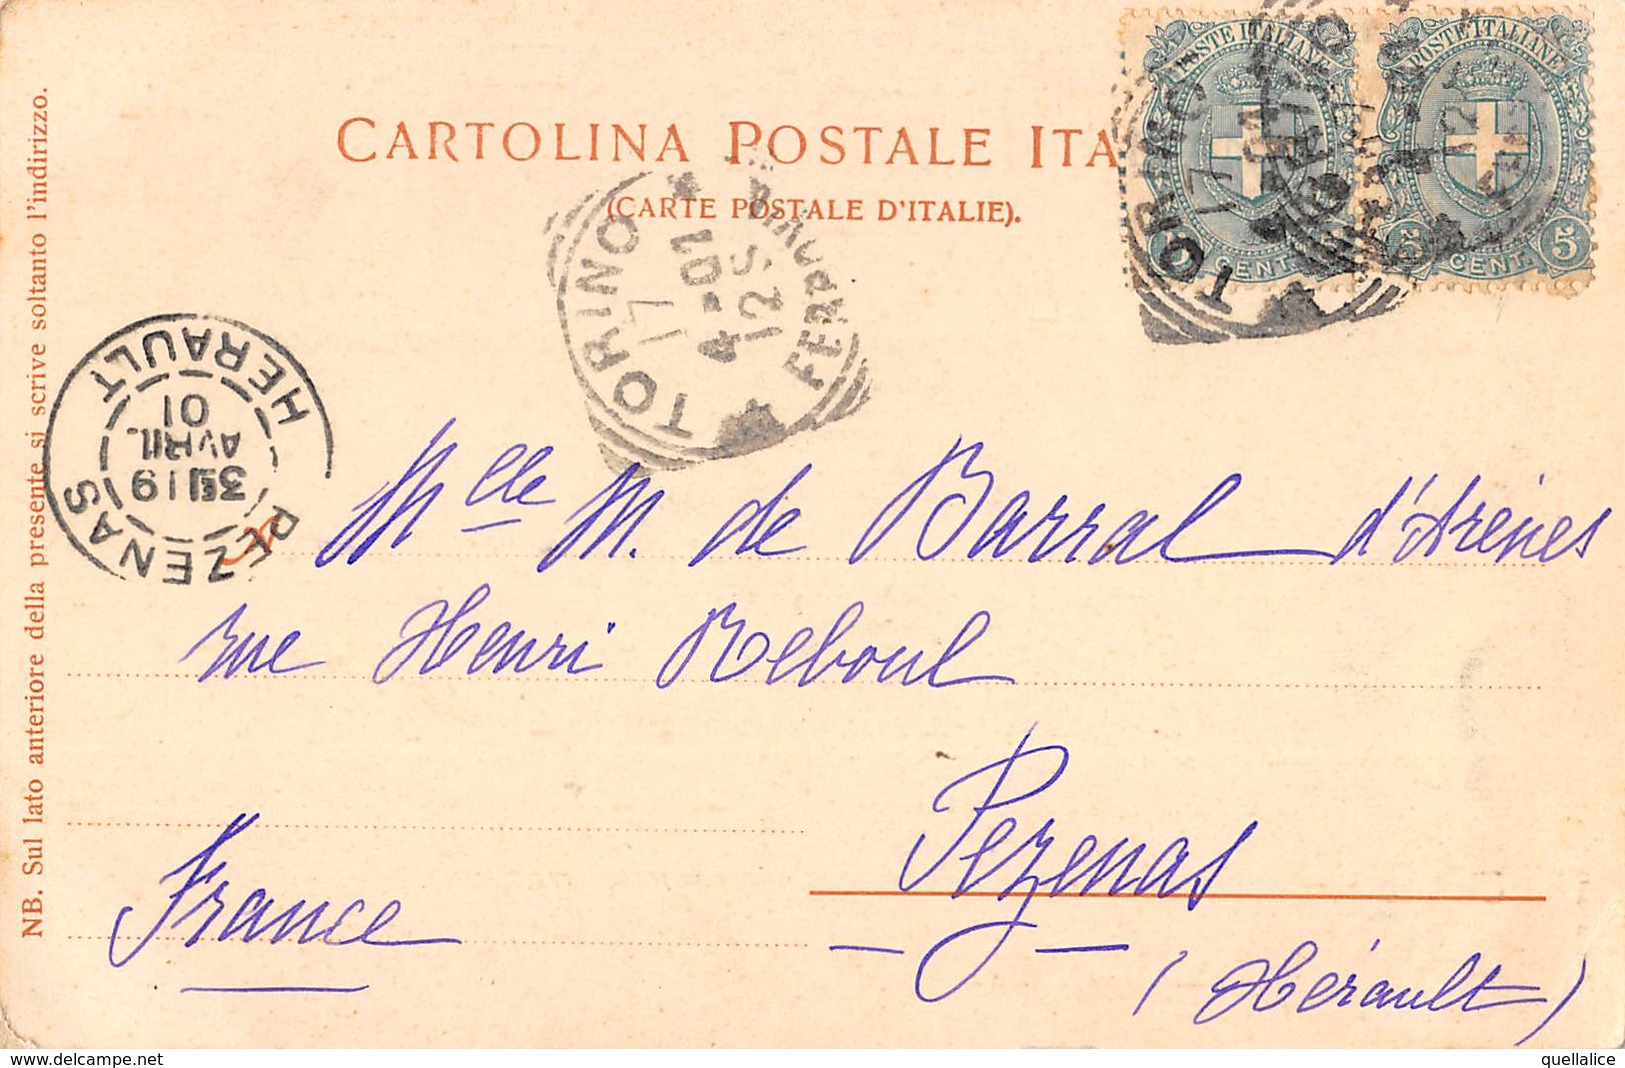 CARTOLINA POSTALE ITA
(CARTE POSTALE D'ITALIE).
POSTE ITALIANE
5 CENT. 5
POSTE ITALIANE
5 CENT. 5
TORINO
17
4-01
12 S
FERROVIA
TORINO
17
TORINO
PEZENAS
HERAULT
3E 19
AVRIL
01
NB. Sul lato anteriore della presente si scrive soltanto l'indirizzo.
Mlle M. de Barral d'Arènes
rue Henri Reboul
Pezenas
(Hérault)
France
delcampe.net
quellalice